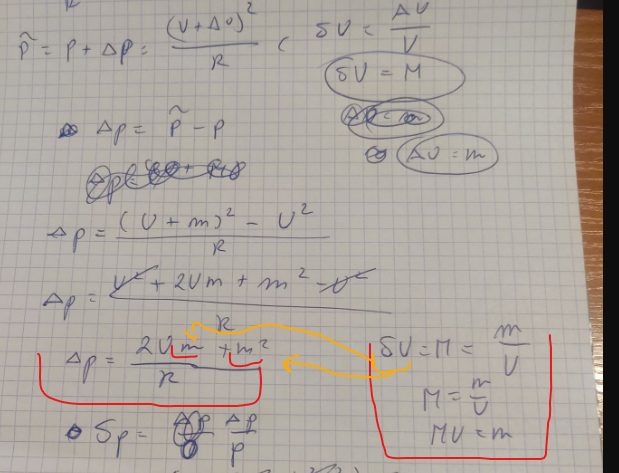 p̃ = p + Δp = (U+ΔU)² / R (
δU = ΔU / U
δU = M
Δp = p̃ - p
ΔU = m
Δp = ((U + m)² - U²) / R
Δp = (U² + 2Um + m² - U²) / R
Δp = (2Um + m²) / R
δU = M = m / U
M = m / U
MU = m
δp = Δp / p